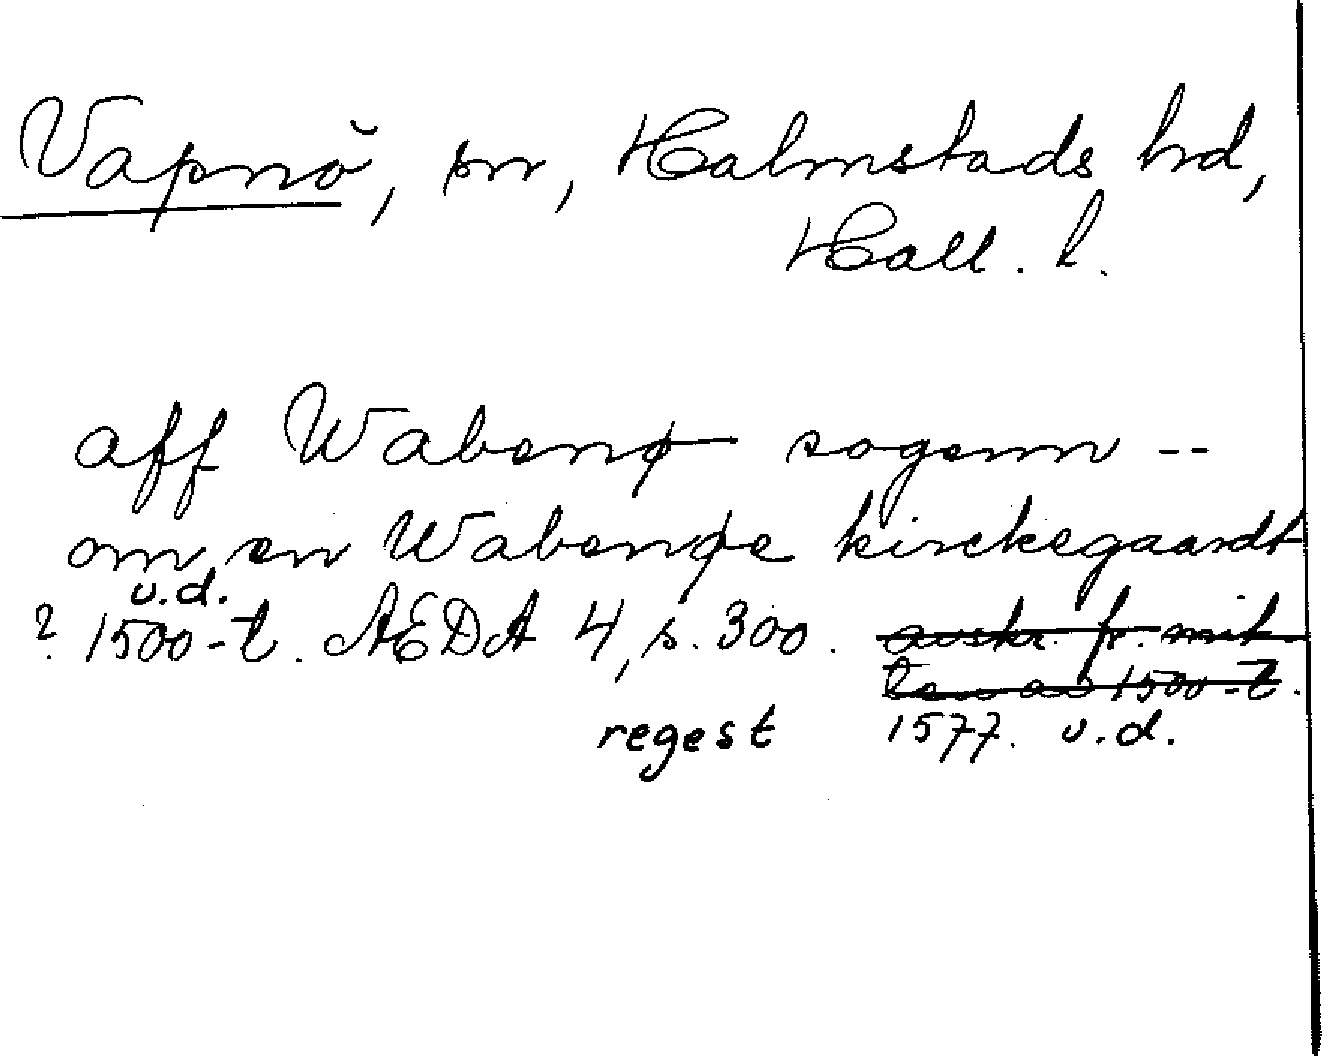 Vapnö, sn, Halmstads hd,
Hall. l.
aff Wabenø sogenn --
om en Wabenøe kirckegaardt
u.d.
? 1500-t. AEDA 4, s. 300. avskr. fr. mit-
ten av 1500-t.
regest 1577. u.d.